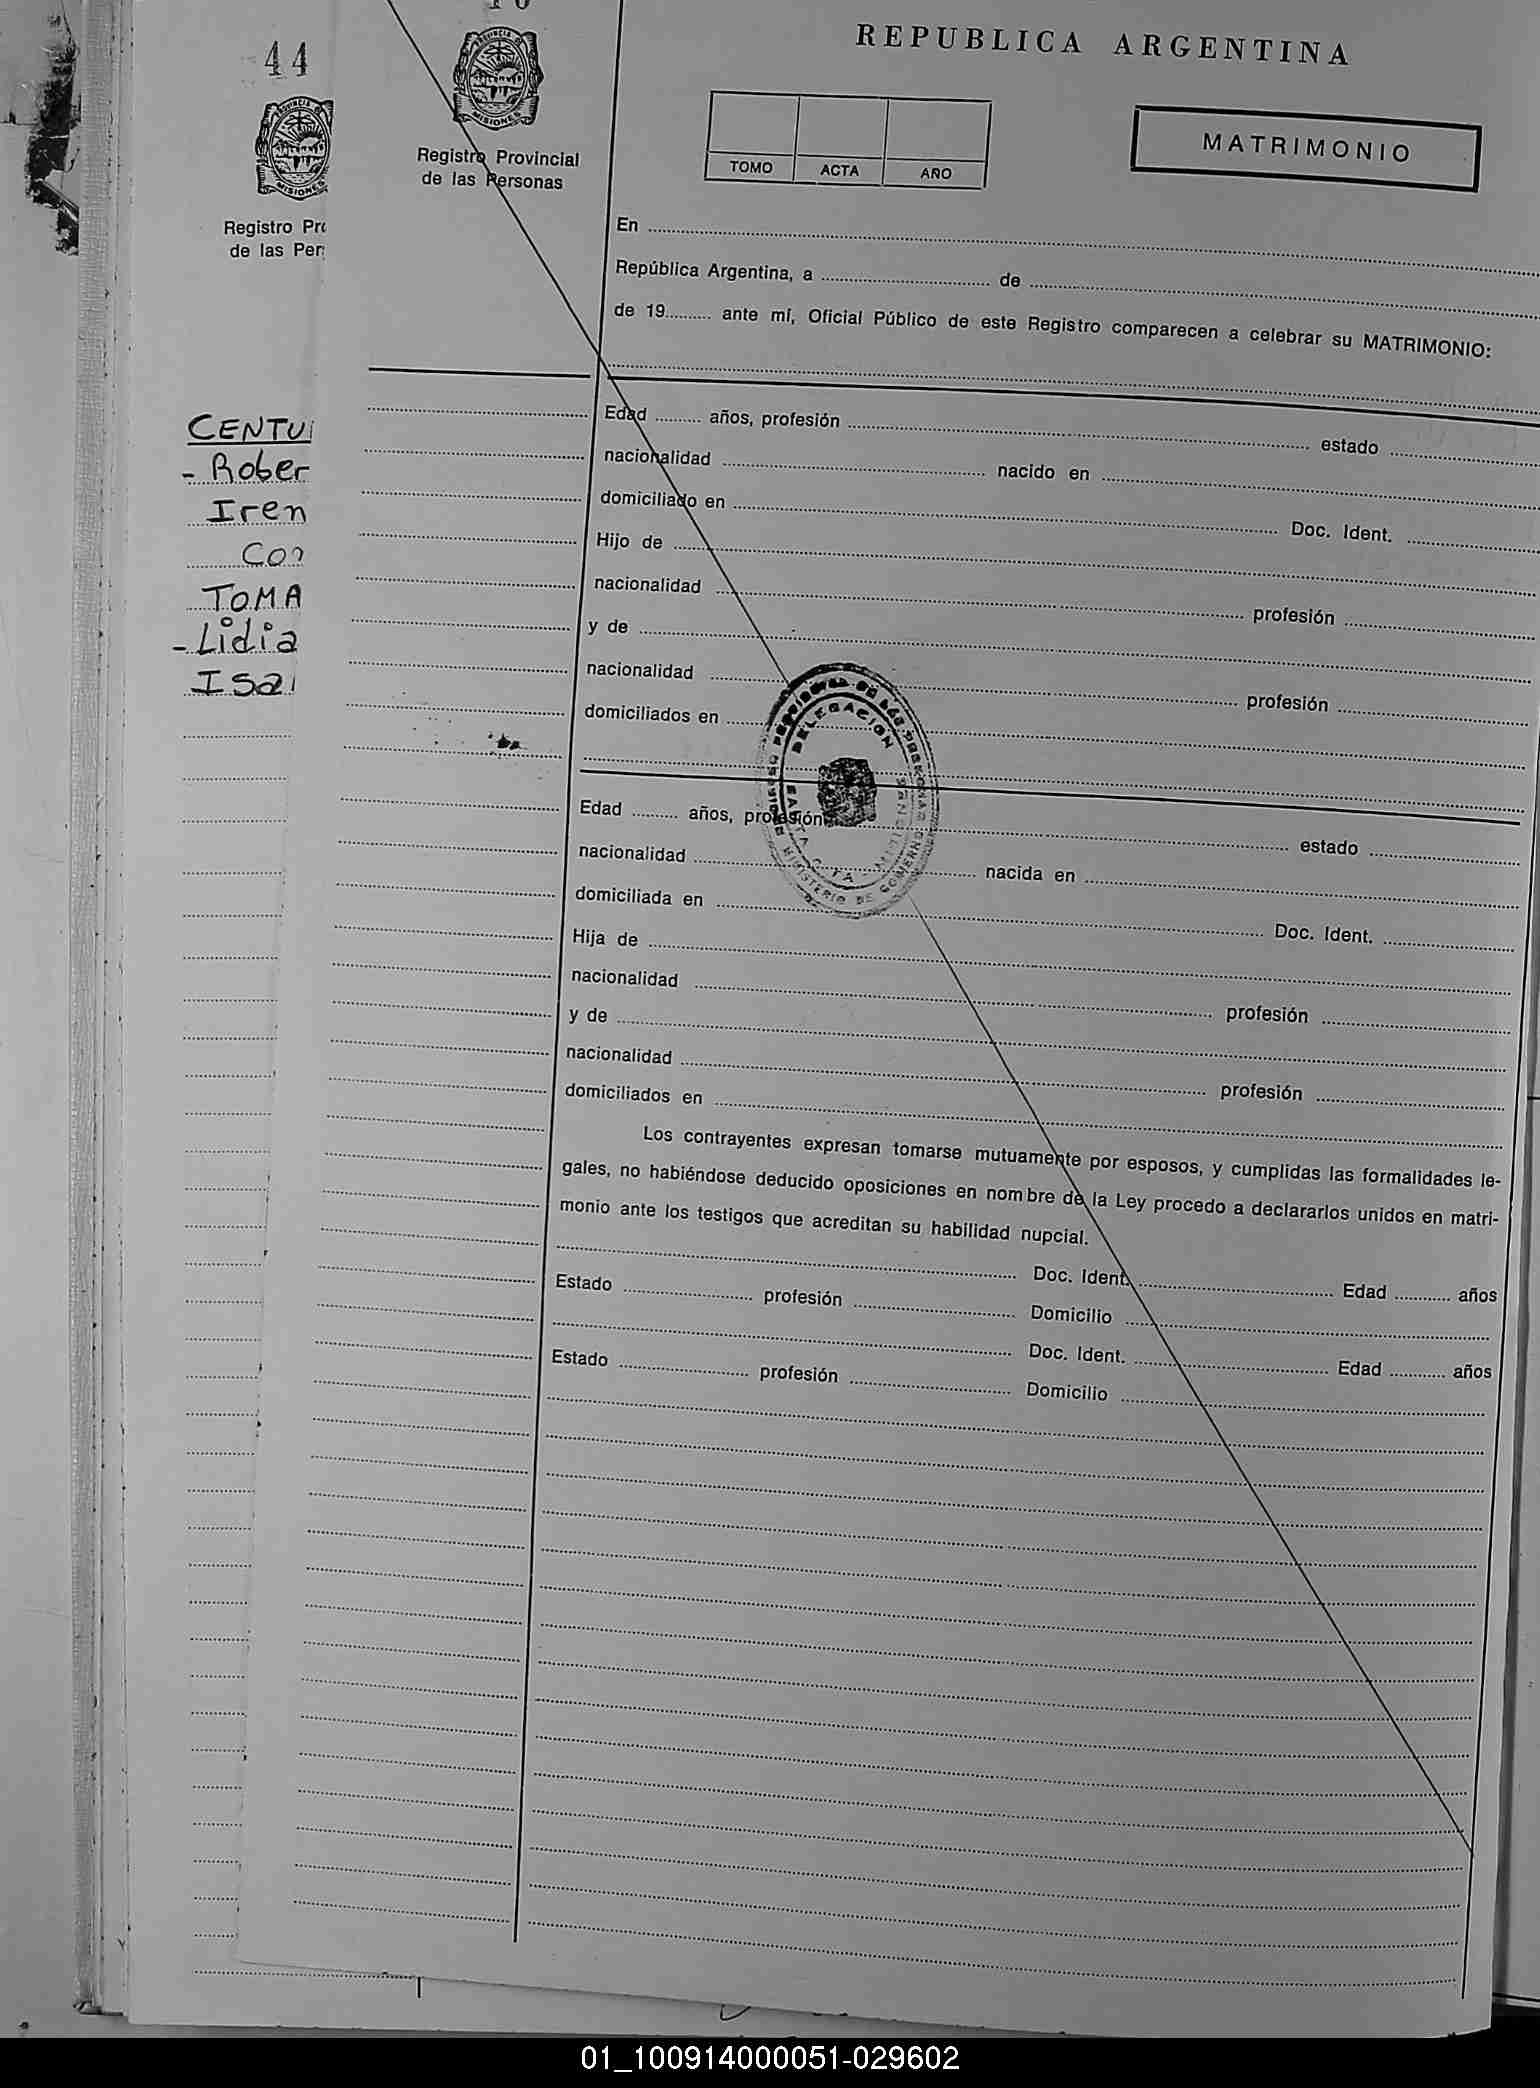 44
PROVINCIA DE
MISIONES
Registro Pro
de las Per
CENTU
- Rober
Iren
Con
TOMA
- Lidia
Isa
PROVINCIA DE
MISIONES
Registro Provincial
de las Personas
REPUBLICA ARGENTINA
TOMO ACTA AÑO
MATRIMONIO
En
República Argentina, a de
de 19 ante mí, Oficial Público de este Registro comparecen a celebrar su MATRIMONIO:
Edad años, profesión estado
nacionalidad nacido en
domiciliado en Doc. Ident.
Hijo de
nacionalidad profesión
y de
nacionalidad profesión
domiciliados en
DELEGACION
MINISTERIO DE GOBIERNO
Edad años, profesión estado
nacionalidad nacida en
domiciliada en Doc. Ident.
Hija de
nacionalidad profesión
y de
nacionalidad profesión
domiciliados en
Los contrayentes expresan tomarse mutuamente por esposos, y cumplidas las formalidades le-
gales, no habiéndose deducido oposiciones en nombre de la Ley procedo a declararlos unidos en matri-
monio ante los testigos que acreditan su habilidad nupcial.
Doc. Ident. Edad años
Estado profesión Domicilio
Doc. Ident. Edad años
Estado profesión Domicilio
01_100914000051-029602